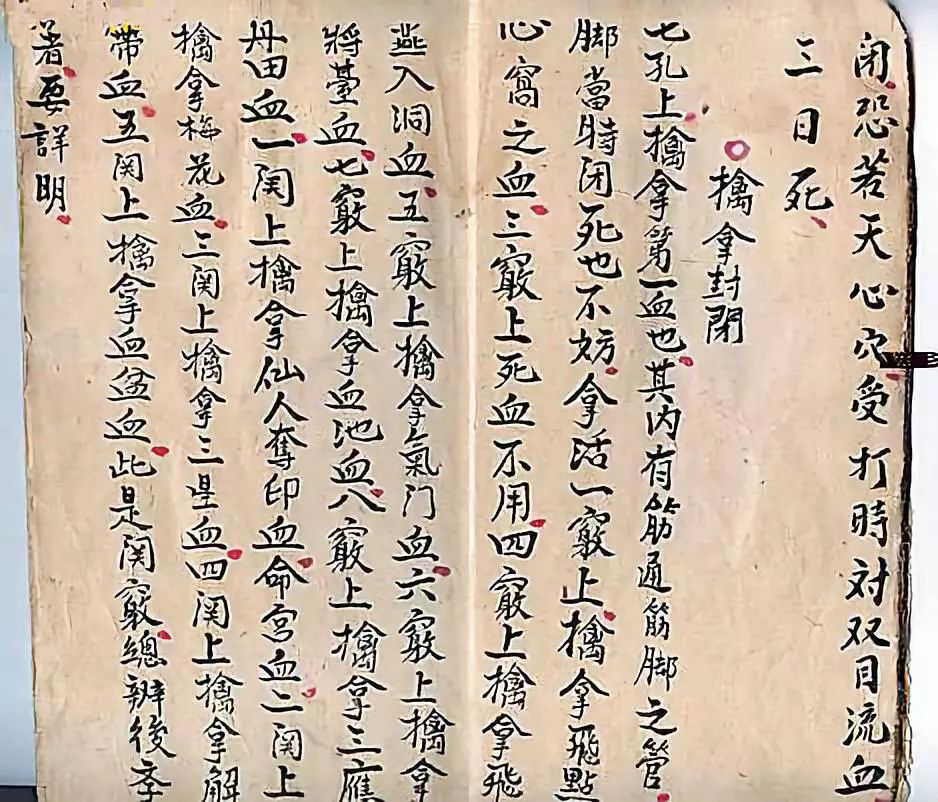 闭恐若天心穴受打時対双目流血
三日死
擒拿封閉
七孔上擒拿第一血也其内有筋通筋脚之管
脚當時闭死也不妨拿活一竅上擒拿飛點
心窩之血三竅上死血不用四竅上擒拿飛
燕入洞血五竅上擒拿氣门血六竅上擒拿
將臺血七竅上擒拿血池血八竅上擒拿三應
丹田血一関上擒拿仙人奪印血命宫血二関上
擒拿梅花血三関上擒拿三星血四関上擒拿解
帶血五関上擒拿血盆血此是関竅總辨後李
者要詳明